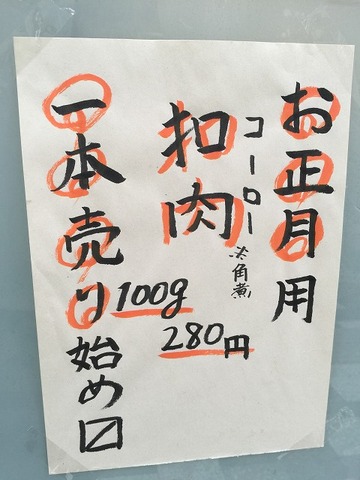 お正月用
コーロー
扣肉
※角煮
100g
280円
一本売り始め〼